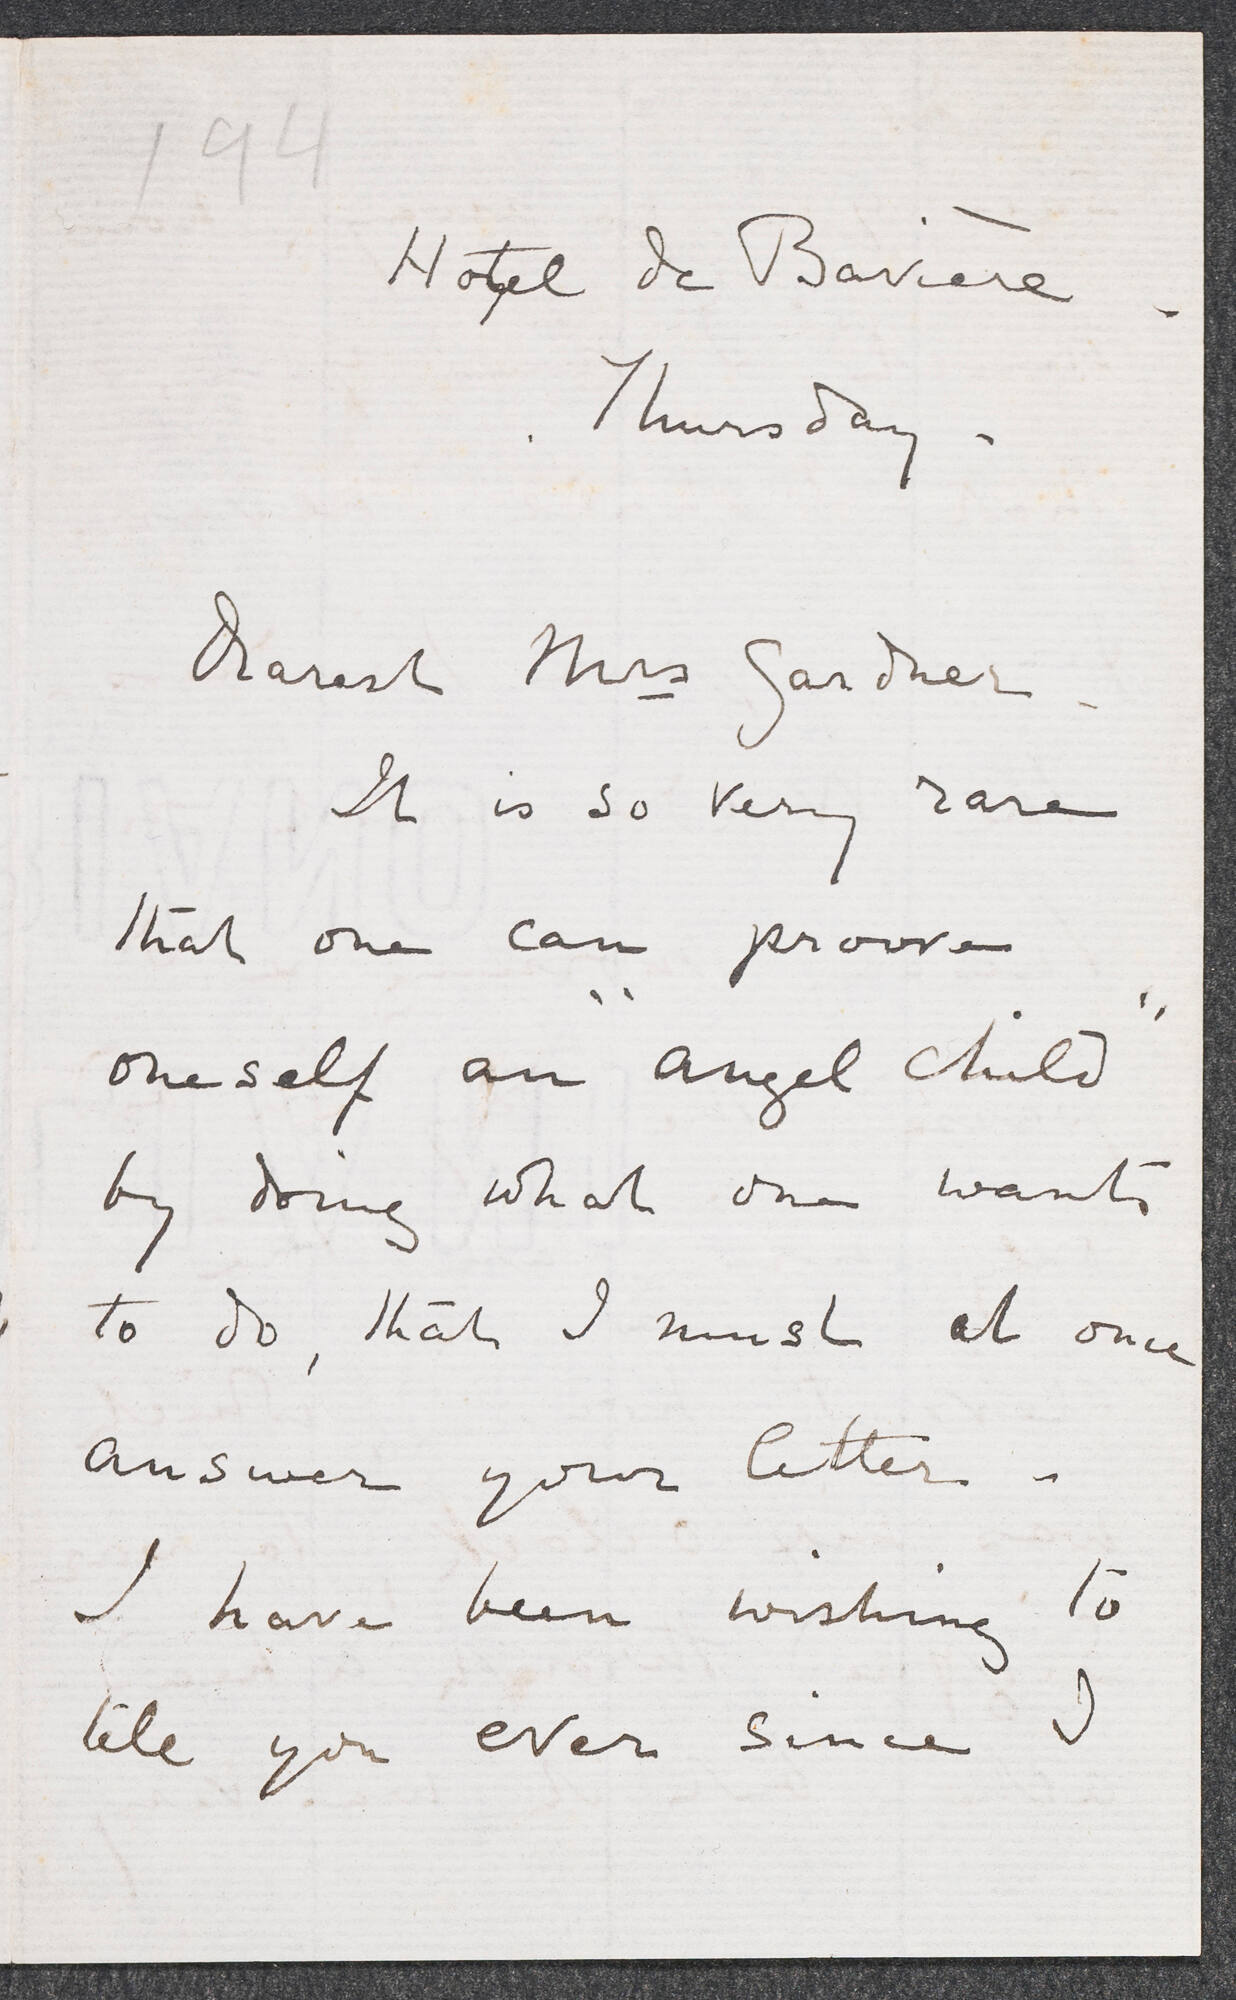 194
Hotel de Bavière -
Thursday -
Dearest Mrs Gardner -
It is so very rare
that one can proove
oneself an "angel child"
by doing what one wants
to do, that I must at once
answer your letter -
I have been wishing to
tell you ever since I